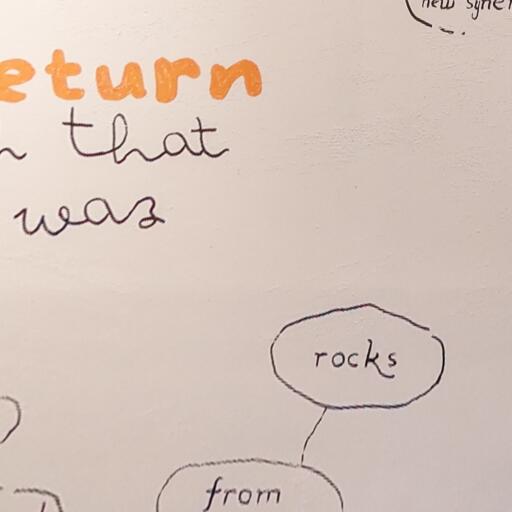 new
eturn
that
was
rocks
from